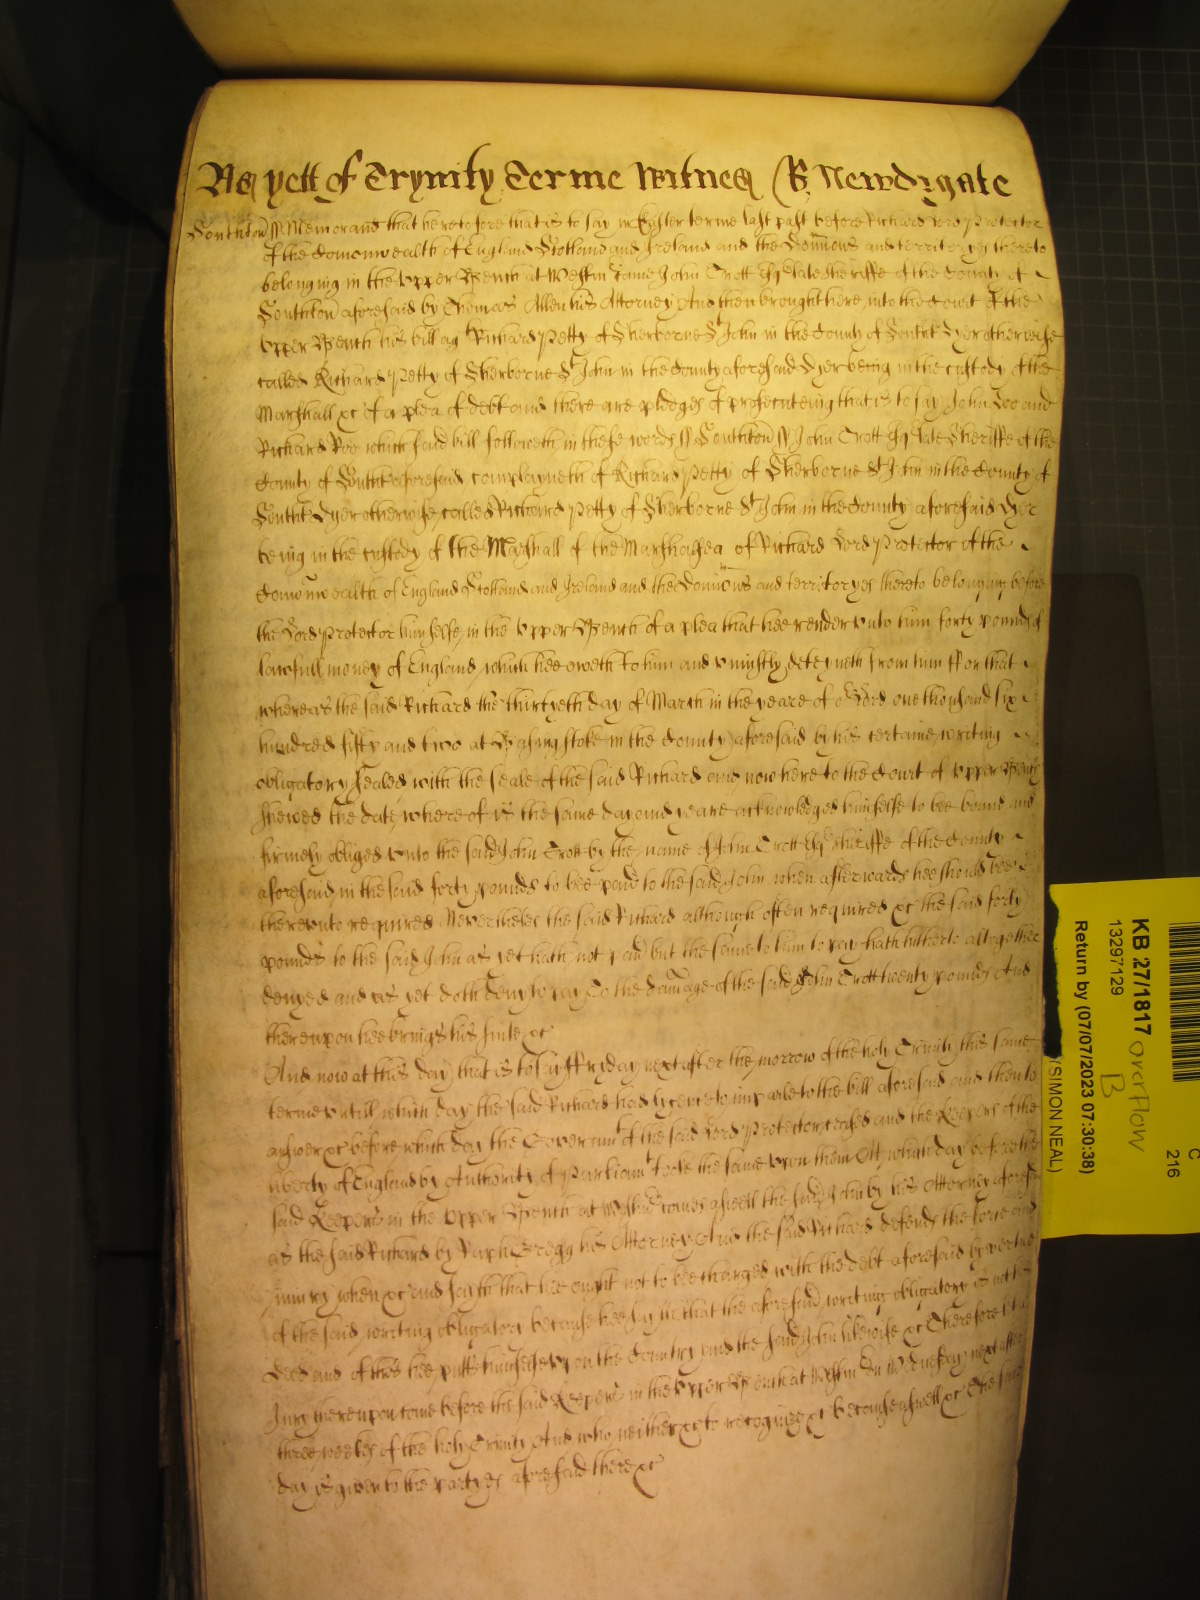 As yett of Trynity Terme Witnes R. Newdigate
Southton ss Memorand that heretofore that is to say in Easter terme last past before Richard Lord Protector
of the Comonwealth of England Scotland and Ireland and the Dominions and territoryes thereto
belonging in the Upper Bench at Westm came John Crott Esq late sheriffe of the County of
Southton aforesaid by Thomas Allen his Attorney And then brought here into the Court of the
Upper Bench his bill ag Richard Petty of Sherborne St John in the County of Southt Dyer otherwise
called Richard Petty of Sherborne St John in the County aforesaid Dyer being in the custody of the
Marshall xc of a plea of debt and there are pledges of prosecuteing that is to say John Doo and
Richard Roo which said bill followeth in these words ss Southton ss John Crott Esq late Sheriffe of the
County of Southt aforesaid complayneth of Richard Petty of Sherborne St John in the County of
Southt Dyer otherwise called Richard Petty of Sherborne St John in the County aforesaid Dyer
being in the custody of the Marshall of the Marshalsea of Richard Lord Protector of the
Comonwealth of England Scotland and Ireland and the Dominions and territoryes thereto belonging before
the Lord Protector himselfe in the Upper Bench of a plea that hee render unto him forty pounds of
lawfull money of England which hee oweth to him and uniustly deteyneth from him ffor that
whereas the said Richard the thirtyeth day of March in the yeare of o Lord one thousand six
hundred fifty and two at Basingstoke in the County aforesaid by his certaine writing
obligatory sealed with the seale of the said Richard and now here to the Court of Upper Bench
shewed the date whereof is the same day and yeare acknowledged himselfe to bee bound and
firmely obliged unto the said John Crott by the name of John Crott Esq sheriffe of the County
aforesaid in the said forty pounds to bee paid to the said John when afterwards hee should bee
thereunto required Neverthelesse the said Richard although often required xc the said forty
pounds to the said John as yet hath not paid but the same to him to pay hath hitherto altogether
denyed and as yet doth deny to pay To the damage of the said John Crott twenty pounds And
thereupon hee brings his suite xc
And now at this day that is to say ffryday next after the morrow of the holy Trinity this same
terme untill which day the said Richard had lycence to imparle to the bill aforesaid and then to
answer xc before which day the Governmt of the said Lord Protector ceased and the Keepers of the
liberty of England by Authority of Parliamt tooke the same upon them Att which day before the
said Keepers in the Upper Bench at Westm comes aswell the said John by his Attorney aforesaid
as the said Richard by Raph Gregg his Attorney And the said Richard defends the force and
iniury when xc and sayth that hee ought not to bee charged with the debt aforesaid by vertue
of the said writing obligatory because hee sayth that the aforesaid writing obligatory is not his
deed and of this hee putts himselfe upon the Country and the said John likewise xc Therefore let a
Jury thereupon come before the said Keepers in the Upper Bench at Westm on Wednesday next after
three weekes of the holy Trinity And who neither xc to recognize xc because aswell xc The same
day is given to the partyes aforesaid there xc
KB 27/1817 overflow
B
13297129
Return by (07/07/2023 07:30:38)
(SIMON NEAL)
C
216